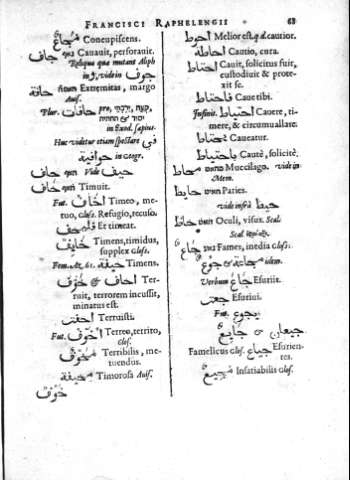 FRANCISCI RAPHELENGII 68
مُجَاع Concupiscens.
جاف Cavavit, perforavit.
Reliqua quæ mutant Aliph
in و, vide in جوف
حافة Extremitas, margo
Avis.
Plur. حافات pro,
in Exod. sæpius.
Huc videtur etiam spectare في
حوافية in Geogr.
حاف Vide حيف
خاف Timuit.
Fut. اخاف Timeo, me-
tuo, Glos. Refugio, recuso.
Et timeat.
خايف Timens, timidus,
supplex Glos.
Fem. &c. خيفة Timens.
اخاف & خوّف Ter-
ruit, terrorem incussit,
minatus est.
اخفت Terruisti.
Fut. اخوّف Terreo, territo,
Glos.
مخوّف Terribilis, me-
tuendus.
مخيفة Timorosa Avis.
خوف
احوط Melior est. q.d. cautior.
احاطة Cautio, cura.
احتاط Cavit, solicitus fuit,
custodiuit & prote-
xit se.
فاحتاط Cave tibi.
Infinit. احتياط Cavere, ti-
mere, & circumuallare.
Caveatur.
باحتياط Cautè, solicitè.
مخاط Muccilago. vide in
Mem.
حايط Paries.
vide infrà حيط
Oculi, visus. Scal.
Scal.
جاع Fames, inedia Glos.
مجاعة & جوع idem.
Verbum جاع Esuriit.
جعت Esurivi.
Fut. يجوع
جيعان & جايع
Famelicus Glos. جياع Esurien-
tes.
مجيع Insatiabilis Glos.